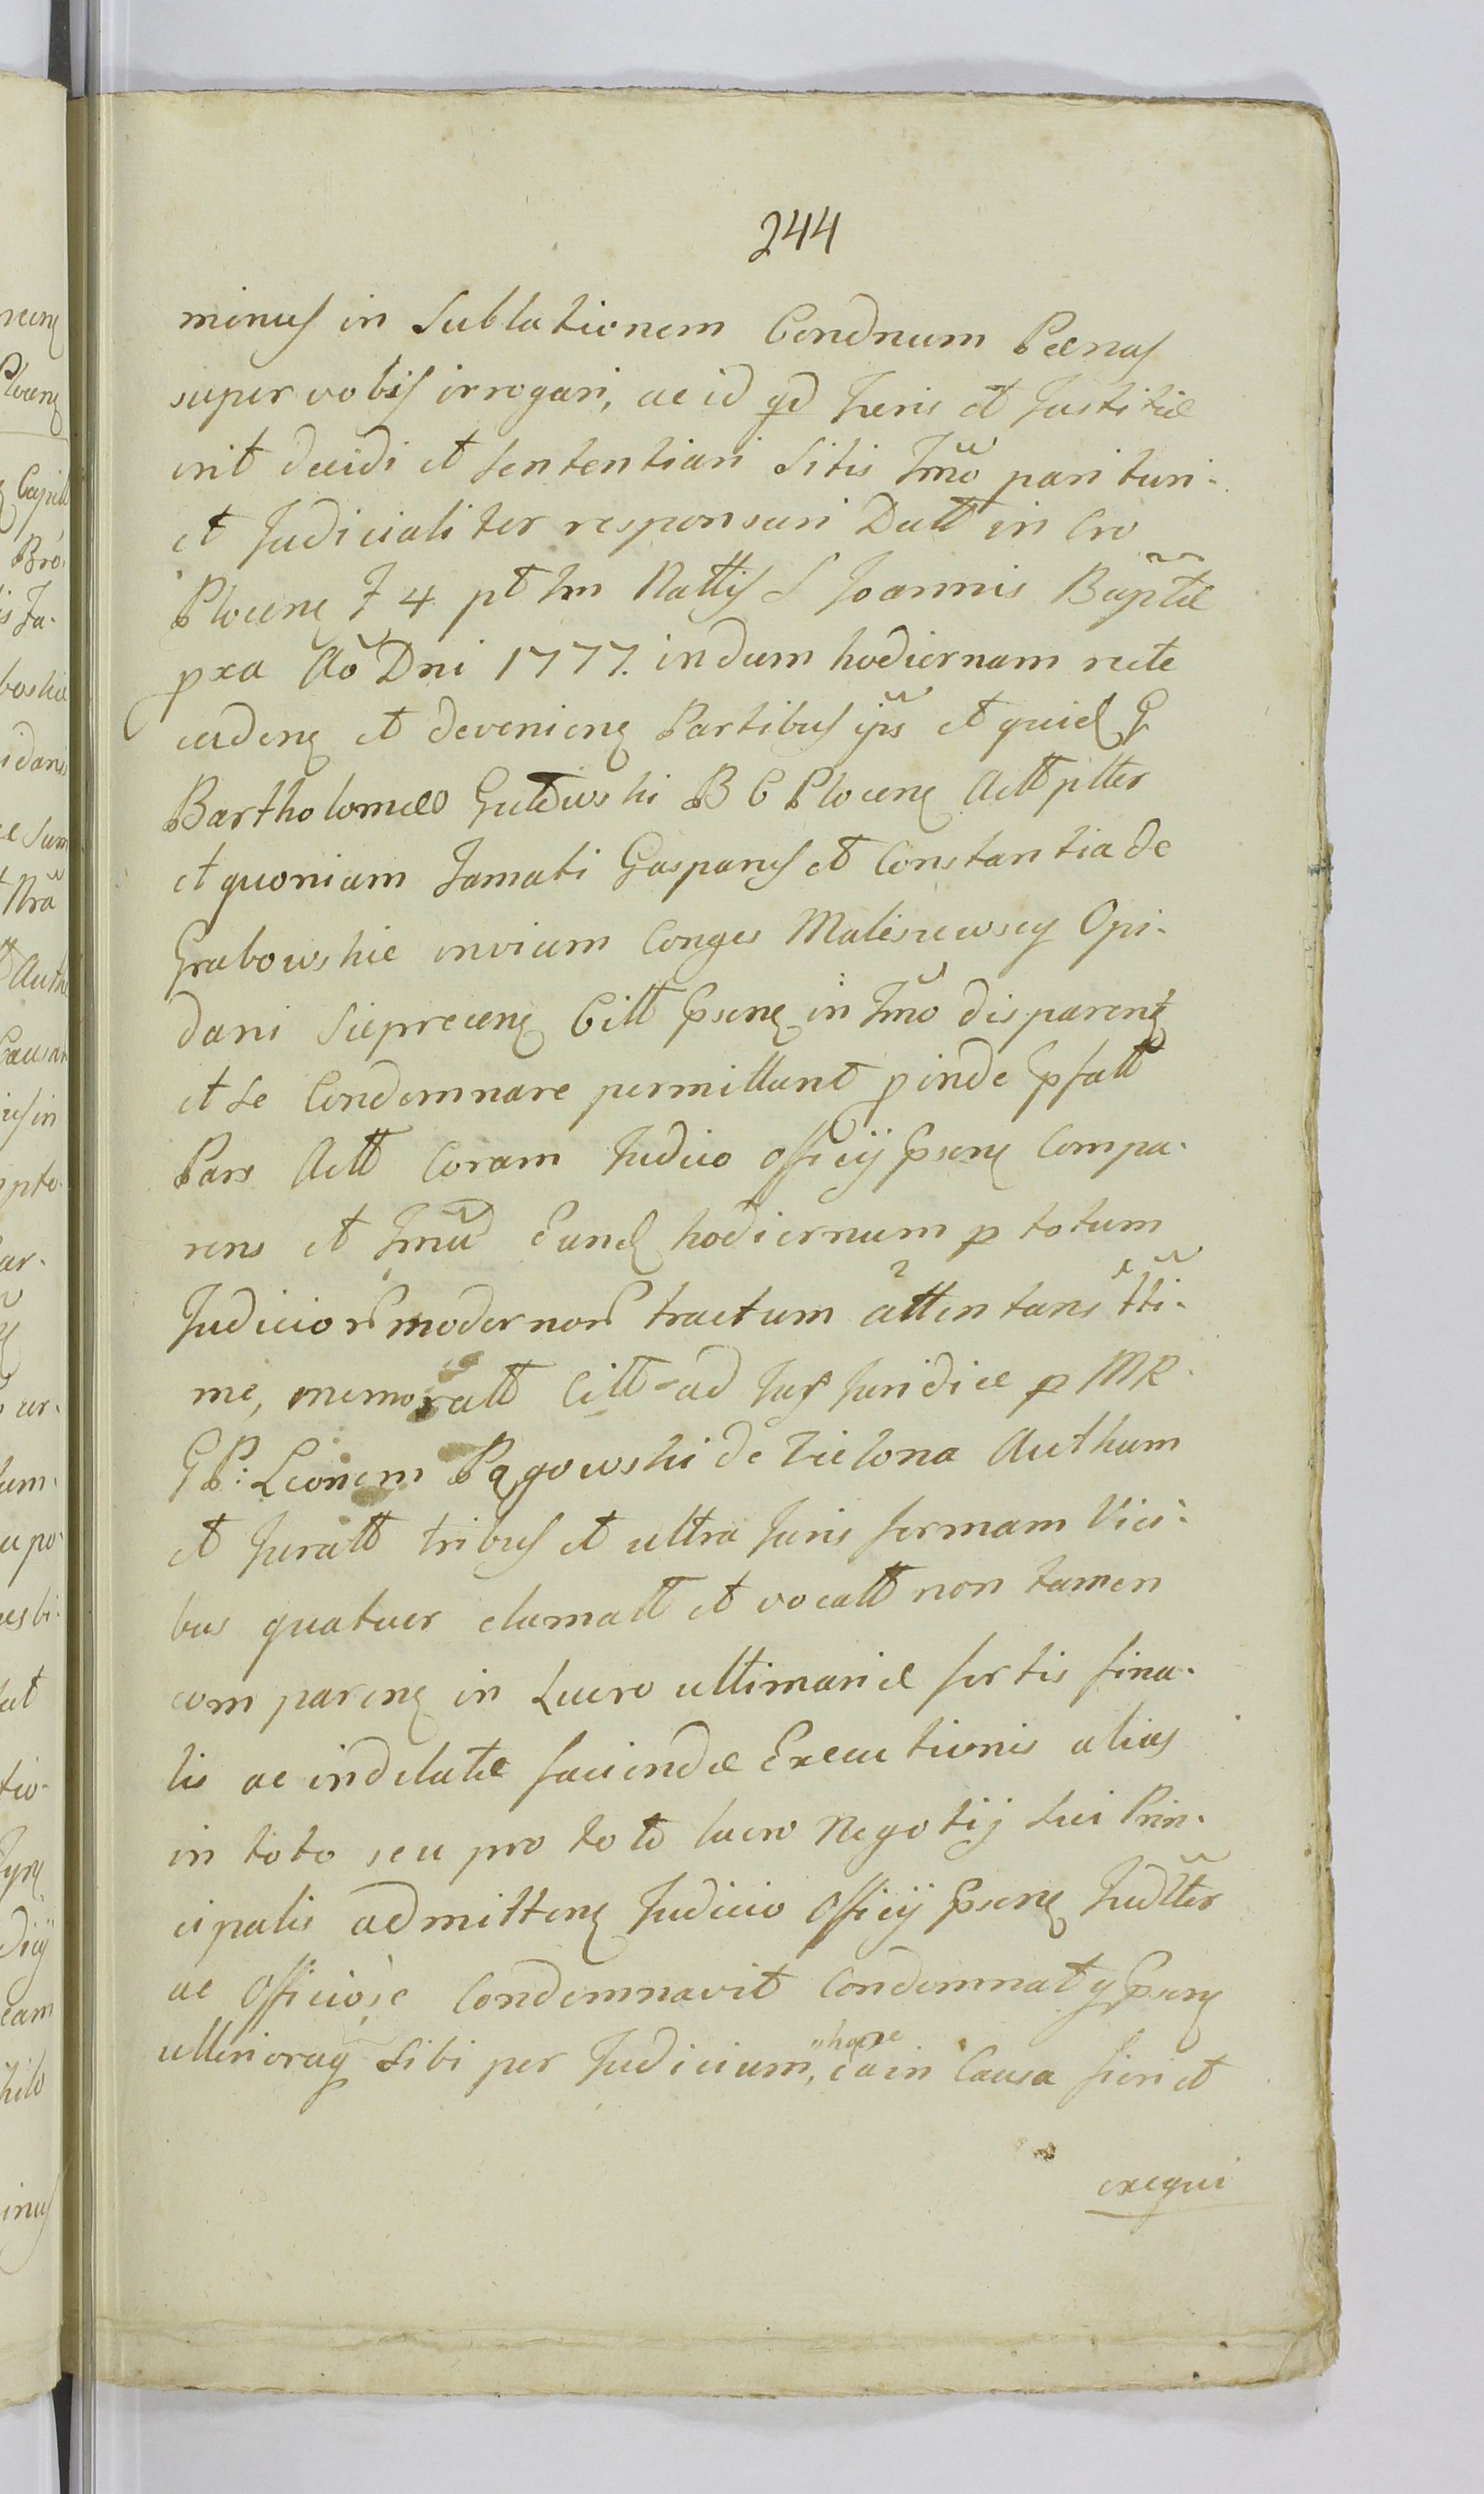 244
minus in Sublationem Condnum Pœnas
super vobis irrogari, ac id qd Juris et Justitiæ
erit decidi et sententiari Sitis Tmõ parituri
et Judicialiter responsuri Datt in Cro
Plocen F 4 pt Fm Nattis S Joannis Baptæ
pxa Aõ Dni 1777. indum hodiernam recte
caden et devenien Partibus ijs et quid G
Bartholomæo Gutewski B C Plocen Actt pltter
et quoniam Famati Gasparus et Constantia de
Grabowskie inviam Conges Maleszewscy Opi-
dani Sieprecen Citt Psen in Tmõ disparen
et se Condemnare permittunt pinde Psatt
Pars Actt Coram Judico Officij Psen Compa-
rens et Tmũ Eund hodiernum p totum
Judicior modernor tractum attentans tti-
me, memoratt Citt ad Jus Juridice p MR
GP: Leonem Pągowski de Zielona Authum
et Juratt tribus et ultra Juris formam Vici-
bus quatuor clamatt et vocatt non tamen
comparen in Lucro ultimariæ sortis fina-
lis ac indelatæ faciendæ Executionis alias
in toto seu pro toto lucro Negotij sui Prin-
cipalis admitten Judicio Officij Psen Judtter
ac Officiose Condemnavit Condemnatq Psen
ulterioraq Sibi per Judicium, hac ea in Causa fieri et
exequi